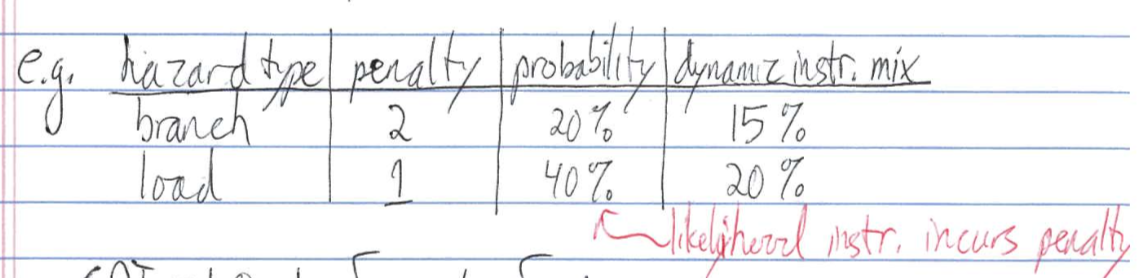 e.g. hazard type penalty probability dynamic instr. mix
branch 2 20% 15%
load 1 40% 20%
likelihood instr. incurs penalty